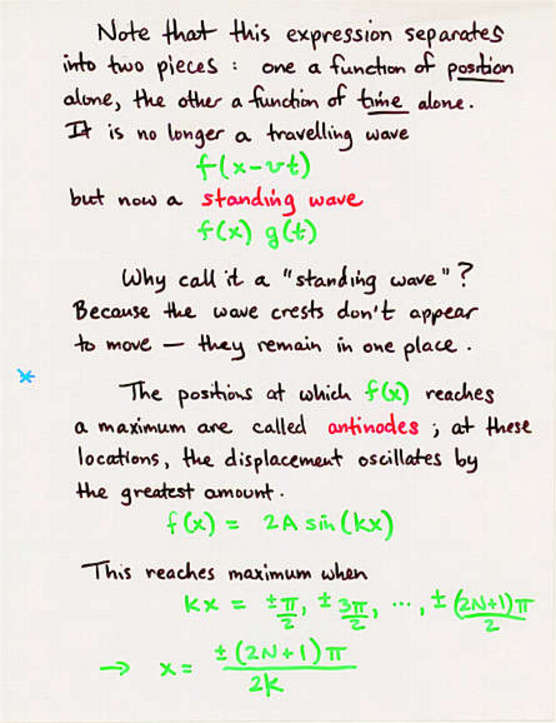 Note that this expression separates
into two pieces : one a function of position
alone, the other a function of time alone.
It is no longer a travelling wave
f(x-vt)
but now a standing wave
f(x) g(t)
Why call it a "standing wave"?
Because the wave crests don't appear
to move — they remain in one place.
* The positions at which f(x) reaches
a maximum are called antinodes ; at these
locations, the displacement oscillates by
the greatest amount.
f(x) = 2A sin(kx)
This reaches maximum when
kx = ±π/2, ±3π/2, ..., ±(2N+1)π/2
→ x = ±(2N+1)π/2k